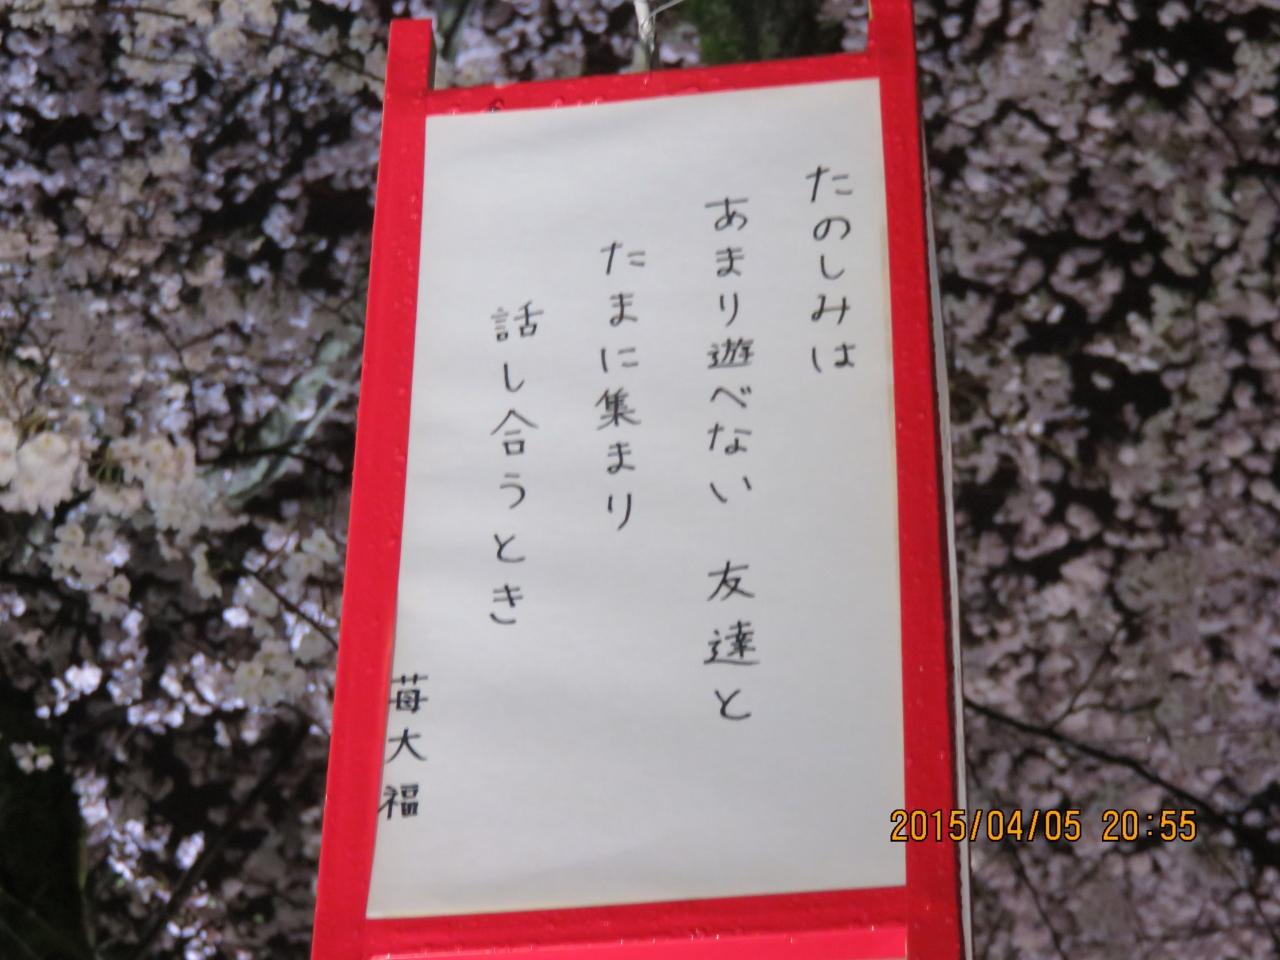 たのしみは
あまり遊べない 友達と
たまに集まり
話し合うとき
苺大福
2015/04/05 20:55